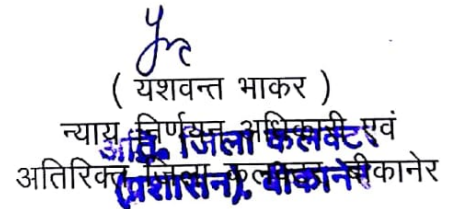 ( यशवन्त भाकर )
न्याय निर्णयन अधिकारी एवं
अति. जिला कलक्टर
अतिरिक्त जिला कलक्टर बीकानेर
(प्रशासन), बीकानेर